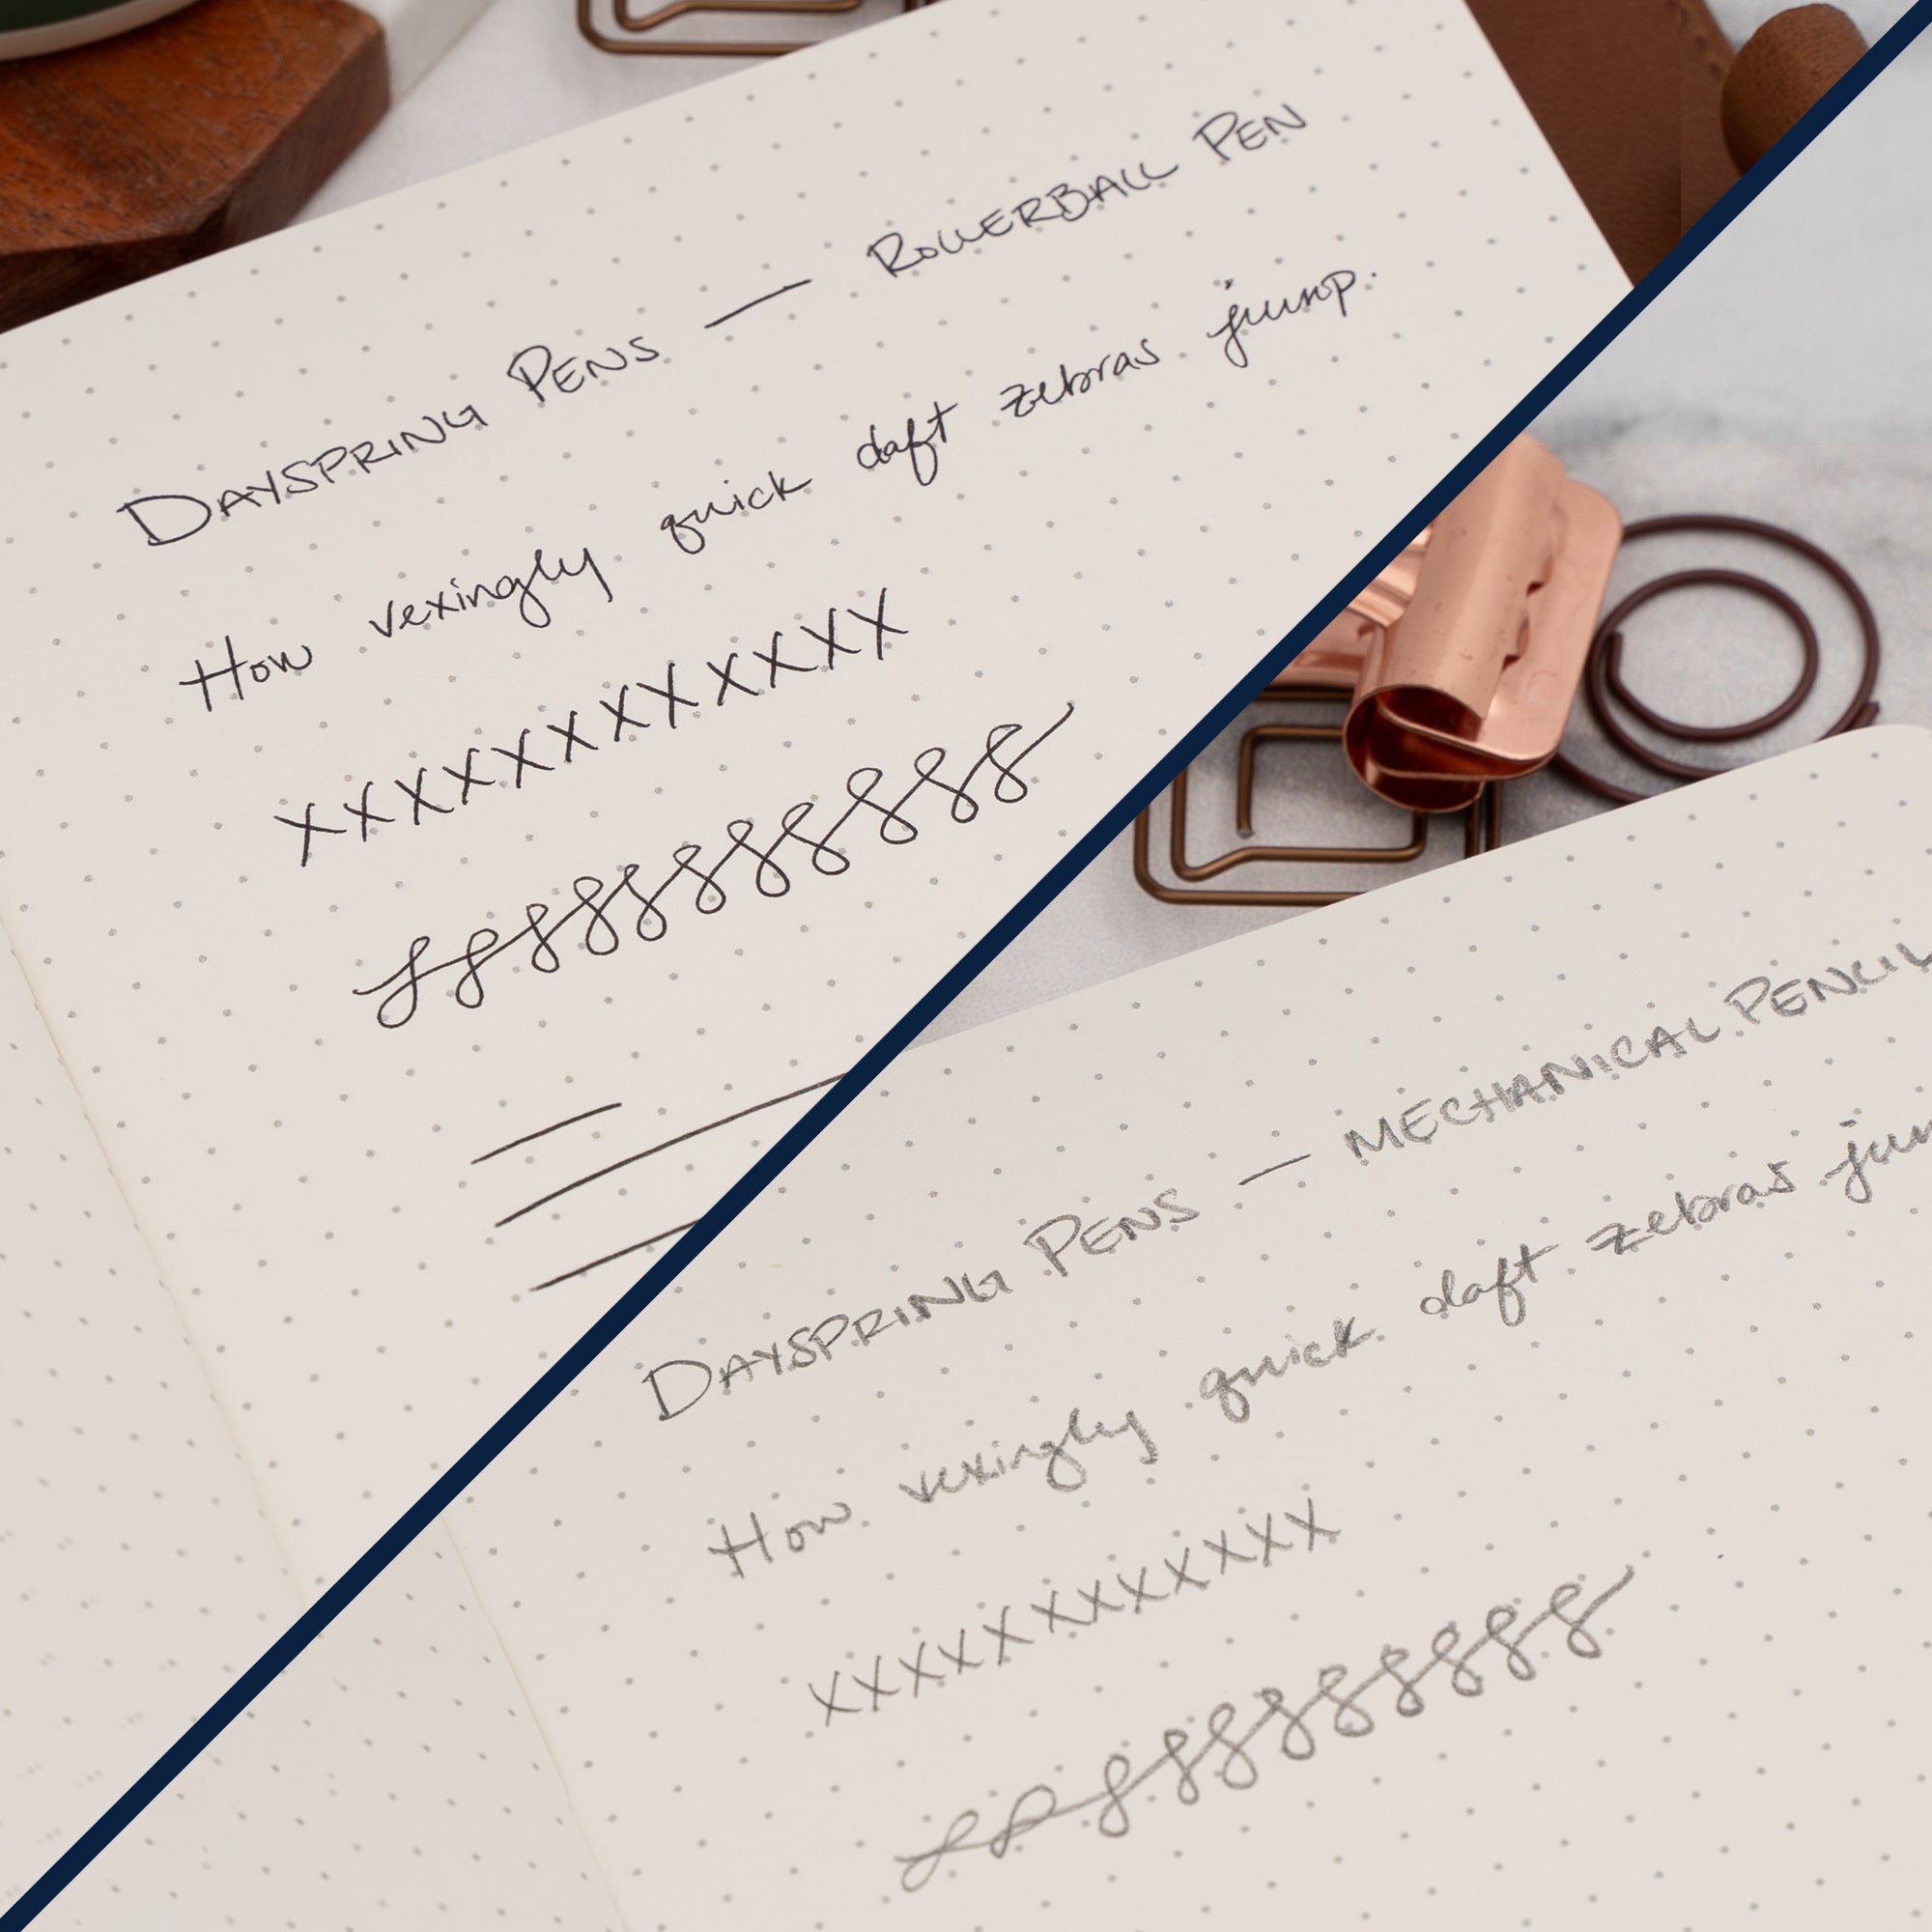 DAYSPRING PENS — ROLLERBALL PEN
How vexingly quick daft zebras jump.
XXXXXXXXXXXX
DAYSPRING PENS — MECHANICAL PENCIL
How vexingly quick daft zebras
XXXXXXXXXXXX